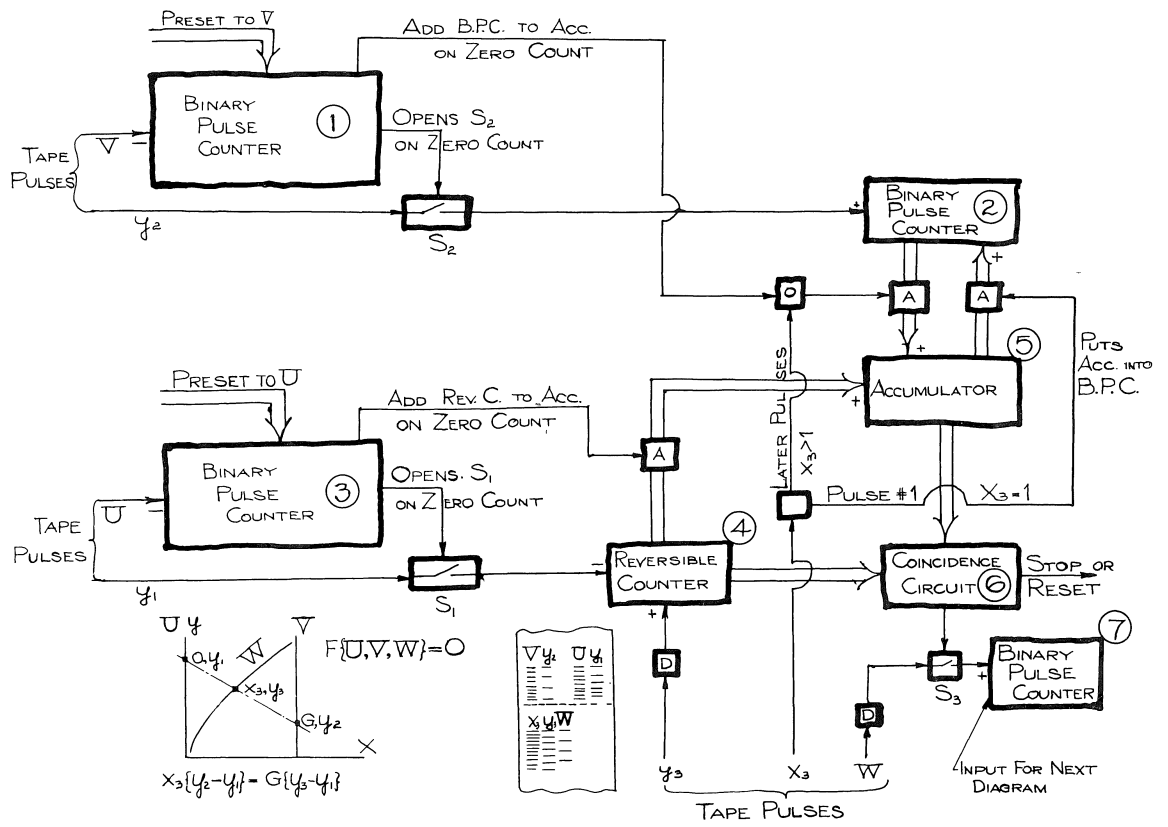 PRESET TO V
ADD B.P.C. TO ACC.
ON ZERO COUNT
BINARY
PULSE
COUNTER
1
OPENS S2
ON ZERO COUNT
TAPE
PULSES
V
−
y2
S2
+
BINARY
PULSE
COUNTER
2
O
A
A
+
+
PUTS
ACC. INTO
B.P.C.
5
ACCUMULATOR
+
PRESET TO U
ADD REV. C. TO ACC.
ON ZERO COUNT
A
LATER PULSES
X3>1
BINARY
PULSE
COUNTER
3
OPENS. S1
ON ZERO COUNT
TAPE
PULSES
U
−
y1
S1
PULSE #1
X3=1
4
−
REVERSIBLE
COUNTER
+
COINCIDENCE
CIRCUIT
6
STOP OR
RESET
7
D
D
S3
+
BINARY
PULSE
COUNTER
INPUT FOR NEXT
DIAGRAM
y3
X3
W
TAPE PULSES
U y
V
W
O,y1
X3,y3
G,y2
X
F{U,V,W}=O
X3{y2-y1}=G{y3-y1}
V y2 U y1
X3 y3 W